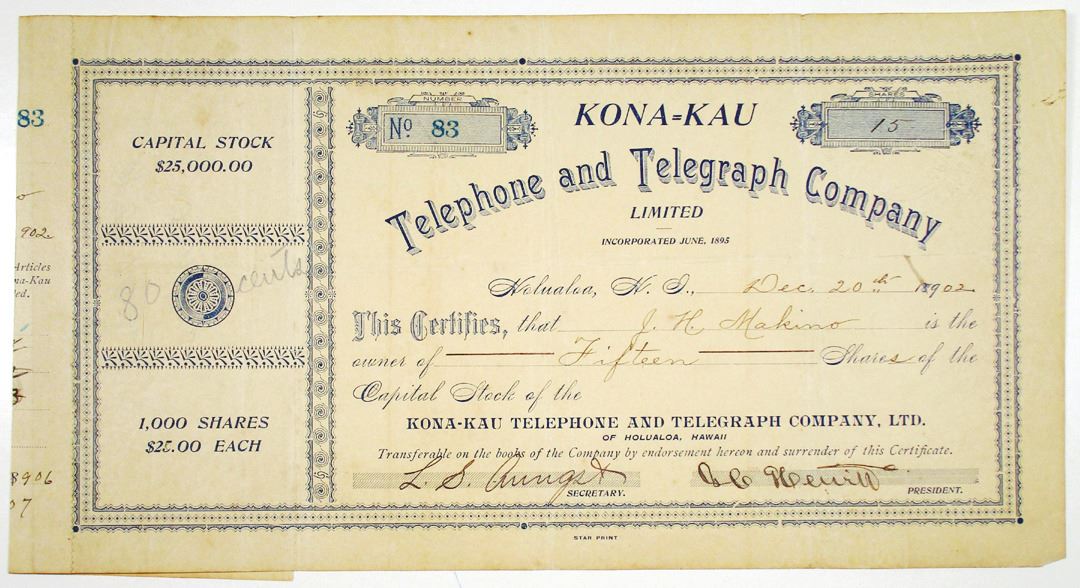 83
902.
Articles
na-Kau
ed.
8906
07
CAPITAL STOCK
$25,000.00
80 cents
1,000 SHARES
$25.00 EACH
NUMBER
No 83
KONA=KAU
SHARES
15
Telephone and Telegraph Company
LIMITED
INCORPORATED JUNE, 1895
Holualoa, H. I., Dec. 20th 1902
This Certifies, that J. H. Makino is the
owner of Fifteen Shares of the
Capital Stock of the
KONA-KAU TELEPHONE AND TELEGRAPH COMPANY, LTD.
OF HOLUALOA, HAWAII
Transferable on the books of the Company by endorsement hereon and surrender of this Certificate.
L. S. Aungst
SECRETARY.
PRESIDENT.
STAR PRINT